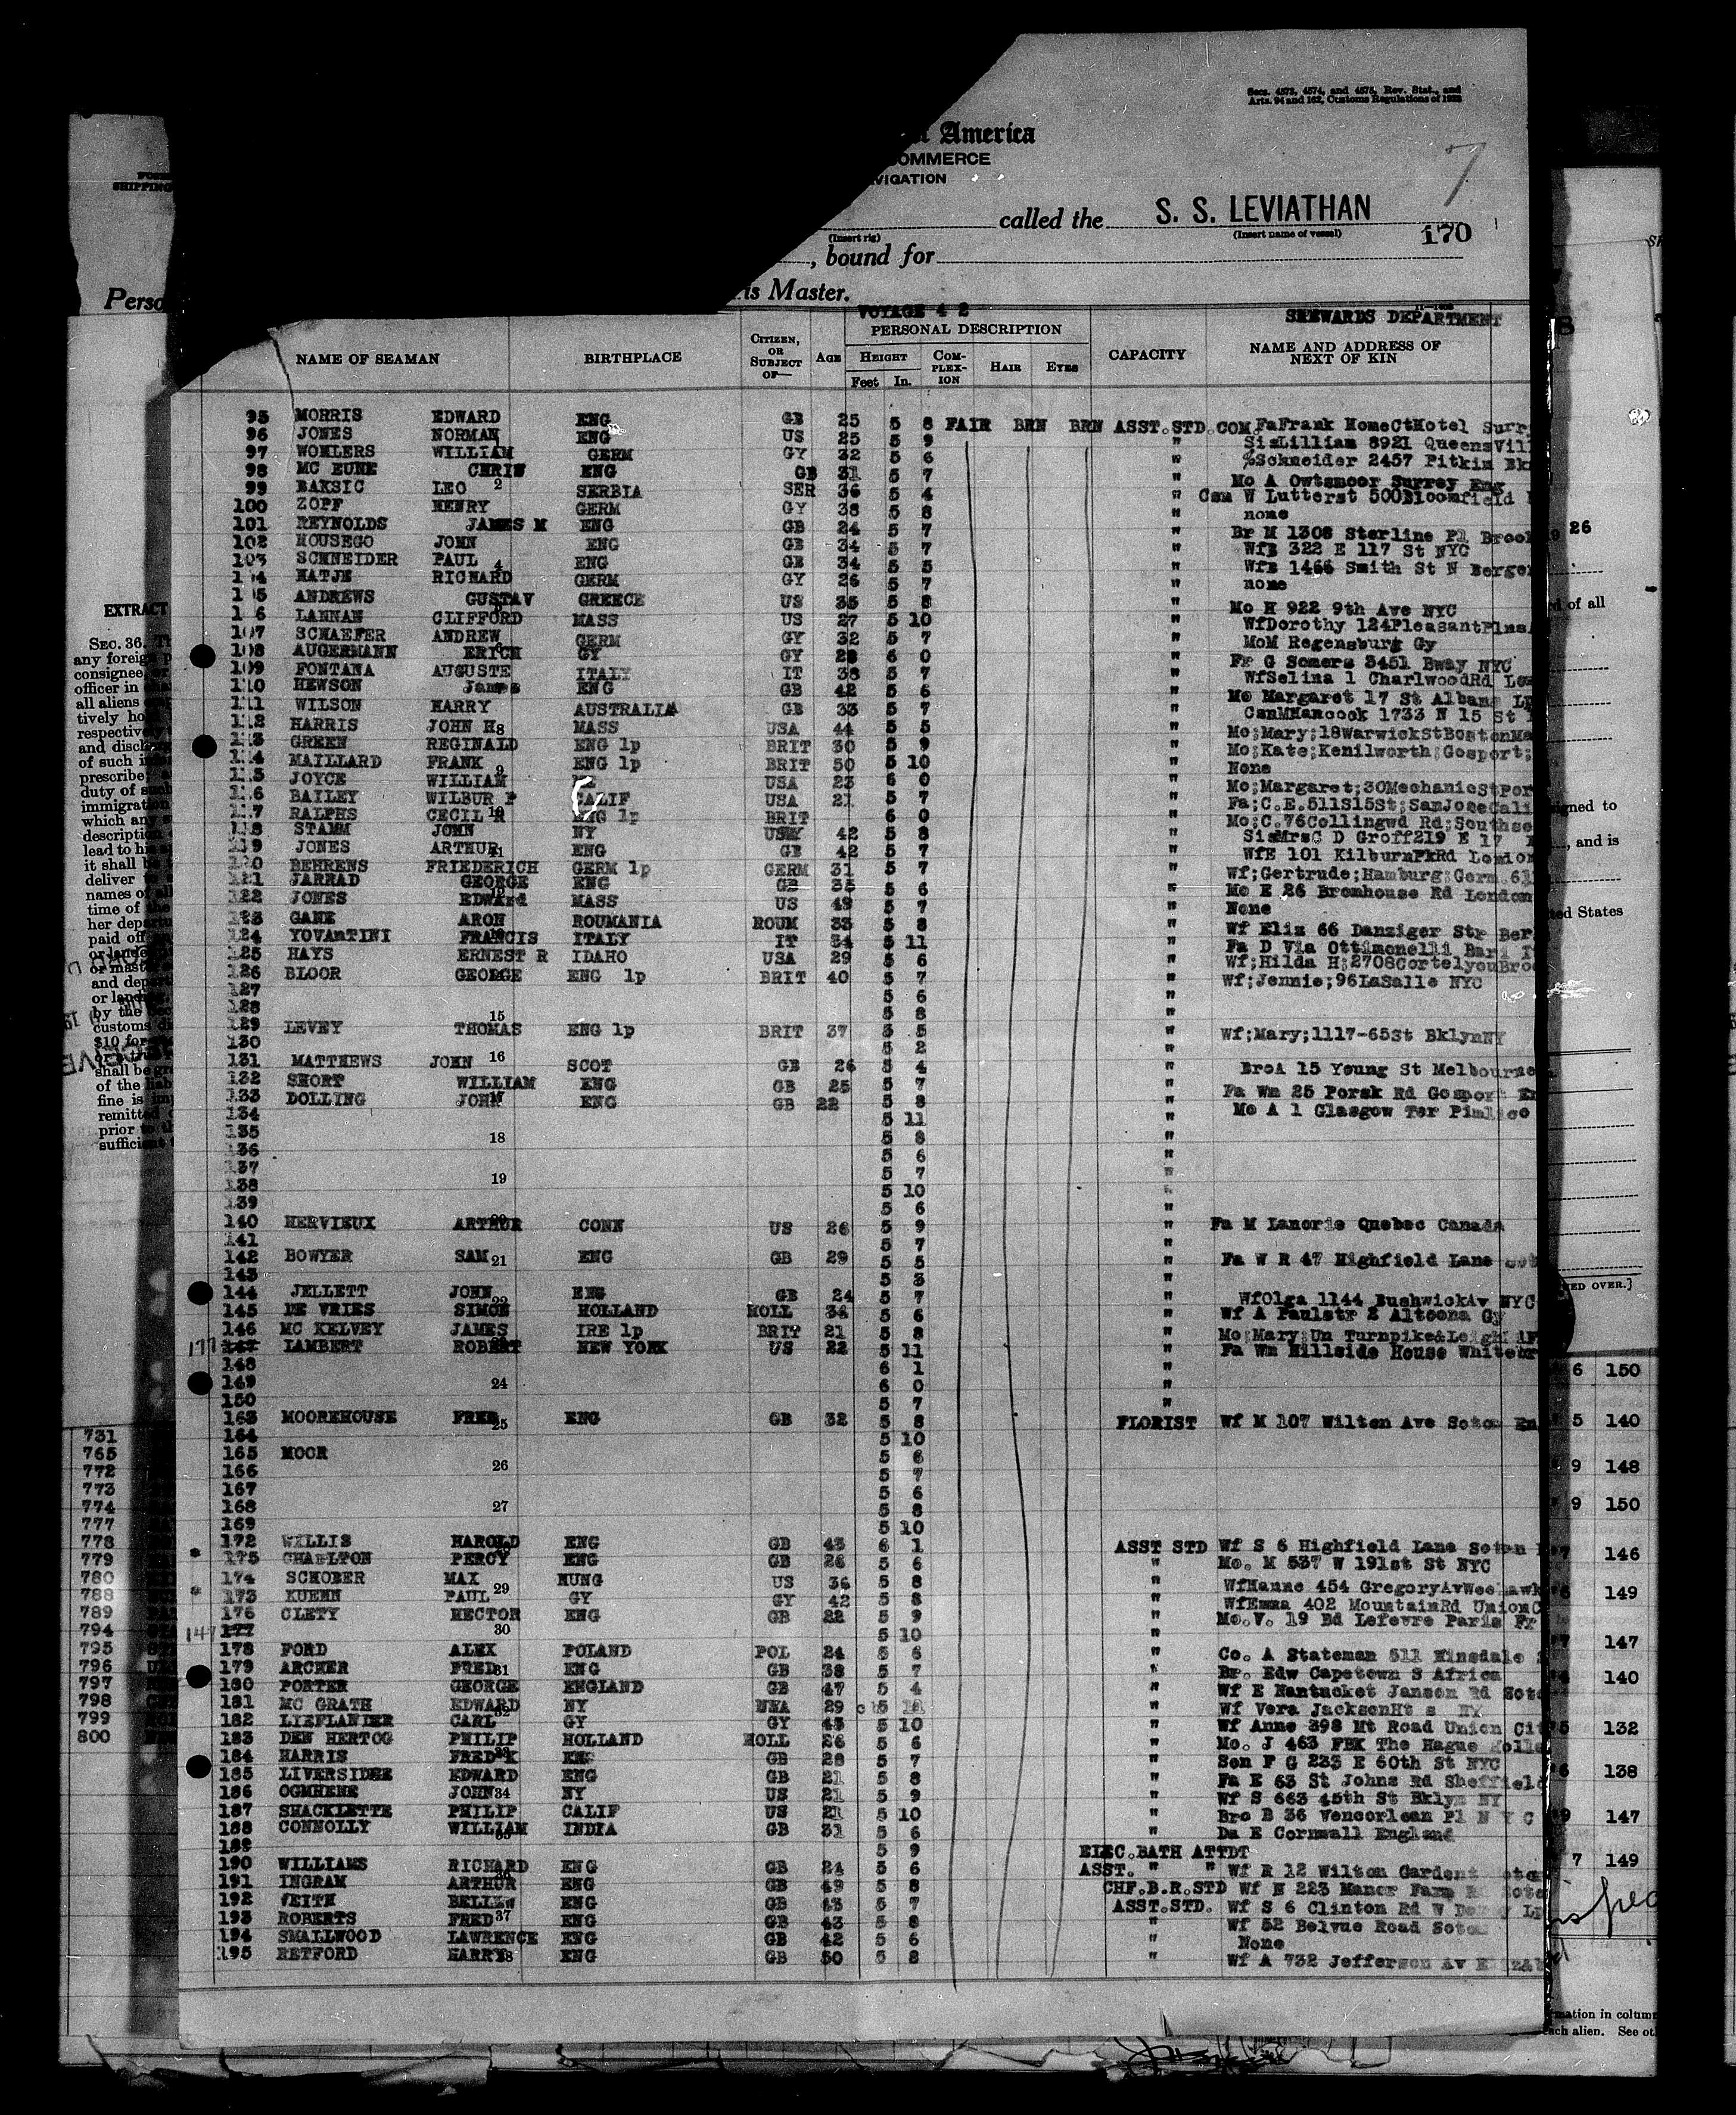 Secs. 4573, 4574, and 4575, Rev. Stat., and
Arts. 94 and 162, Customs Regulations of 1923
America
COMMERCE
VIGATION
7
called the S. S. LEVIATHAN
(Insert rig) (Insert name of vessel) 170
, bound for
is Master.
VOYAGE 4 2
STEWARDS DEPARTMENT
NAME OF SEAMAN BIRTHPLACE CITIZEN, OR SUBJECT OF— AGE PERSONAL DESCRIPTION HEIGHT Feet In. COMPLEXION HAIR EYES CAPACITY NAME AND ADDRESS OF NEXT OF KIN
95 MORRIS EDWARD ENG GB 25 5 8 FAIR BRN BRN ASST.STD.COM FaFrank HomeCtHotel Surr
96 JONES NORMAN ENG US 25 5 9 " SisLillian 8921 QueensVil
97 WOHLERS WILLIAM GERM GY 32 5 6 " %Schneider 2457 Pitkin Bk
98 MC EUNE CHRIS ENG GB 31 5 7 " Mo A Owtsmoor Surrey Eng
99 BAKSIC LEO SERBIA SER 36 5 4 " Csn W Lutterst 500Bloomfield
100 ZOPF HENRY GERM GY 38 5 8 " none
101 REYNOLDS JAMES M ENG GB 24 5 7 " Br M 1308 Sterline Pl Broo
102 HOUSEGO JOHN ENG GB 34 5 7 " WfB 322 E 117 St NYC
103 SCHNEIDER PAUL ENG GB 34 5 5 " WfB 1466 Smith St N Berge
104 HATJE RICHARD GERM GY 26 5 7 " none
105 ANDREWS GUSTAV GREECE US 35 5 8 " Mo H 922 9th Ave NYC
106 LANNAN CLIFFORD MASS US 27 5 10 " WfDorothy 124PleasantPlns
107 SCHAEFER ANDREW GERM GY 32 5 7 " MoM Regensburg Gy
108 AUGERMANN ERICH GY GY 28 6 0 " Fr G Somers 3451 Bway NYC
109 FONTANA AUGUSTE ITALY IT 38 5 7 " WfSelina 1 CharlwoodRd Lo
110 HEWSON James ENG GB 42 5 6 " Mo Margaret 17 St Albans L
111 WILSON HARRY AUSTRALIA GB 33 5 7 " CsnMHancock 1733 N 15 St
112 HARRIS JOHN H MASS USA 44 5 5 " Mo;Mary;18WarwickStBostonMa
113 GREEN REGINALD ENG lp BRIT 30 5 9 " Mo;Kate;Kenilworth;Gosport;
114 MAILLARD FRANK ENG lp BRIT 50 5 10 " None
115 JOYCE WILLIAM USA 23 6 0 " Mo;Margaret;30MechanicStPor
116 BAILEY WILBUR P CALIF USA 21 5 7 " Fa;C.E.511S15St;SanJoseCali
117 RALPHS CECIL R ENG lp BRIT 6 0 " Mo;C.76Collingwd Rd;Southse
118 STAMM JOHN NY 42 5 8 " SisMrsC D Groff219 E 17
119 JONES ARTHUR ENG GB 42 5 7 " WfE 101 KilburnPkRd London
120 BEHRENS FRIEDERICH GERM lp GERM 31 5 7 " Wf;Gertrude;Hamburg;Germ.61
121 JARRAD GEORGE ENG GB 35 5 6 " Mo E 26 Bromhouse Rd London
122 JONES EDWard MASS US 49 5 7 " None
123 GANE ARON ROUMANIA ROUM 33 5 8 " Wf Eliz 66 Danziger Str Ber
124 YOVANTINI FRANCIS ITALY IT 34 5 11 " Fa D Via Ottimonelli Bari
125 HAYS ERNEST R IDAHO USA 29 5 6 " Wf;Hilda H;2708CortelyouBro
126 BLOOR GEORGE ENG lp BRIT 40 5 7 " Wf;Jennie;96LaSalle NYC
127 5 6 "
128 5 8 "
129 LEVEY THOMAS ENG lp BRIT 37 5 5 " Wf;Mary;1117-65St BklynNY
130 5 2 "
131 MATTHEWS JOHN SCOT GB 26 5 4 " BroA 15 Young St Melbourne
132 SHORT WILLIAM ENG GB 25 5 7 " Fa Wm 25 Porsk Rd Gosport En
133 DOLLING JOHN ENG GB 22 5 8 " Mo A 1 Glasgow Ter Pimlico
134 5 11 "
135 5 8 "
136 5 6 "
137 5 7 "
138 5 10 "
139 5 6 "
140 HERVIEUX ARTHUR CONN US 26 5 9 " Fa M Lanorie Quebec Canada
141 5 7 "
142 BOWYER SAM ENG GB 29 5 5 " Fa W R 47 Highfield Lane
143 5 3 "
144 JELLETT JOHN ENG GB 24 5 7 " WfOlga 1144 BushwickAv NYC
145 DE VRIES SIMON HOLLAND HOLL 34 5 6 " Wf A Paulstr 2 Altoona Gy
146 MC KELVEY JAMES IRE lp BRIT 21 5 8 " Mo;Mary;Un Turnpike&Leigh
177 147 LAMBERT ROBERT NEW YORK US 22 5 11 " Fa Wm Hillside House Whiteb
148 6 1 "
149 6 0 "
150 5 7 "
163 MOOREHOUSE FRED ENG GB 32 5 8 FLORIST Wf M 107 Wilton Ave Soton En
164 5 10
165 MOOR 5 6
166 5 7
167 5 6
168 5 8
169 5 10
172 WILLIS HAROLD ENG GB 43 6 1 ASST STD Wf S 6 Highfield Lane Soton
175 CHARLTON PERCY ENG GB 26 5 6 " Mo. M 537 W 191st St NYC
174 SCHOBER MAX HUNG US 36 5 8 " WfHanne 454 GregoryAvWeehawk
173 KUEHN PAUL GY GY 42 5 8 " WfEmma 402 MountainRd UnionC
176 CLETY HECTOR ENG GB 22 5 9 " Mo.V. 19 Bd Lefevre Paris Fr
147 177 5 10 "
178 FORD ALEX POLAND POL 24 5 6 " Co. A Stateman 511 Hinsdale
179 ARCHER FRED ENG GB 38 5 7 " Br. Edw Capetown S Africa
180 PORTER GEORGE ENGLAND GB 47 5 4 " Wf E Nantucket Janson Rd Soto
181 MC GRATH EDWARD NY 29 5 11 " Wf Vera JacksonHt s NY
182 LIEFLANDER CARL GY GY 43 5 10 " Wf Anne 398 Mt Road Union Cit
183 DEN HERTOG PHILIP HOLLAND HOLL 26 5 6 " Mo. J 463 FBK The Hague Holl
184 HARRIS FRED'K ENG GB 28 5 7 " Son F G 233 E 60th St NYC
185 LIVERSIDGE EDWARD ENG GB 21 5 8 " Fa E 63 St Johns Rd Sheffield
186 OGMHENE JOHN NY US 21 5 9 " Wf S 663 45th St Bklyn NY
187 SHACKLETTE PHILIP CALIF US 21 5 10 " Bro B 36 Vencorlean Pl N Y C
188 CONNOLLY WILLIAM INDIA GB 31 5 6 " Da E Cornwall England
189 5 9 ELEC.BATH ATTDT
190 WILLIAMS RICHARD ENG GB 24 5 6 ASST. " " Wf R 12 Wilton Garden
191 INGRAM ARTHUR ENG GB 49 5 8 CHF.B.R.STD Wf N 223 Manor Farm R Soto
192 VEITH BELLEW ENG GB 43 5 7 ASST.STD. Wf S 6 Clinton Rd W
193 ROBERTS FRED ENG GB 43 5 8 " Wf 52 Belvue Road Soton
194 SMALLWOOD LAWRENCE ENG GB 42 5 6 " None
195 RETFORD HARRY ENG GB 50 5 8 " Wf A 732 Jefferson Av
Perso
EXTRACT
SEC. 36.
any foreig
consignee
officer in
all aliens
tively
respectively
of such
prescribe
duty of
immigration
which any
description
lead to
it shall
deliver
names of
time of
her
paid off
or master
and
or
by the
customs
$10 for
shall be
of the
fine is
remitted
prior
sufficient
731
765
772
773
774
777
778
779
780
788
789
794
795
796
797
798
799
800
26
of all
signed to
, and is
States
ED OVER.]
6 150
5 140
9 148
9 150
7 146
149
147
140
5 132
6 138
9 147
7 149
mation in colum
ach alien. See ot